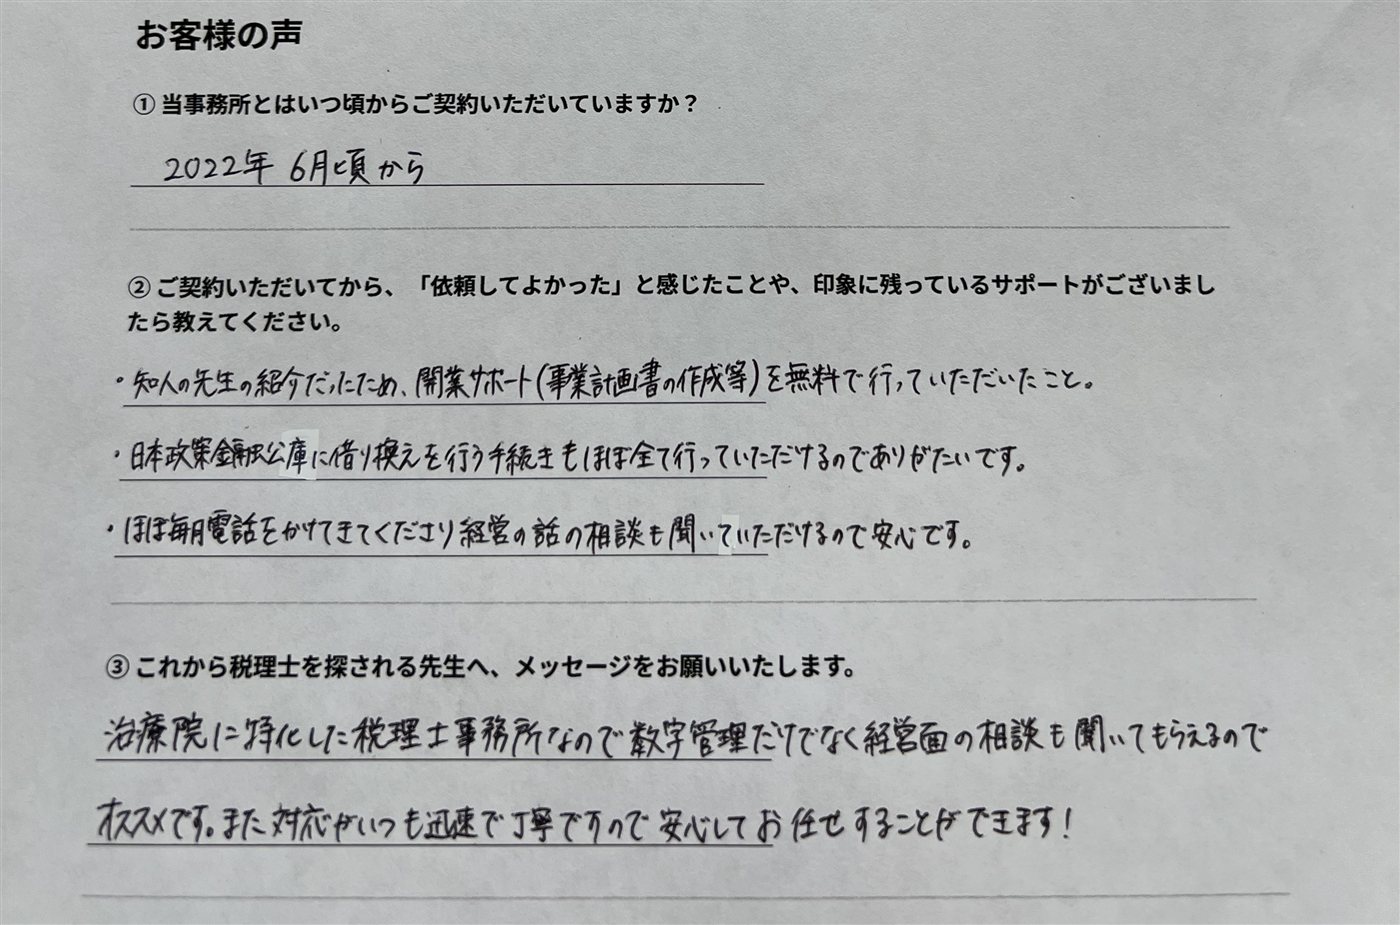 お客様の声
① 当事務所とはいつ頃からご契約いただいていますか？
2022年 6月頃から
② ご契約いただいてから、「依頼してよかった」と感じたことや、印象に残っているサポートがございまし
たら教えてください。
・知人の先生の紹介だったため、開業サポート(事業計画書の作成等)を無料で行っていただいたこと。
・日本政策金融公庫に借り換えを行う手続きもほぼ全て行っていただけるのでありがたいです。
・ほぼ毎月電話をかけてきてくださり経営の話の相談も聞いていただけるので安心です。
③ これから税理士を探される先生へ、メッセージをお願いいたします。
治療院に特化した税理士事務所なので数字管理だけでなく経営面の相談も聞いてもらえるので
オススメです。また対応がいつも迅速で丁寧ですので安心してお任せすることができます！